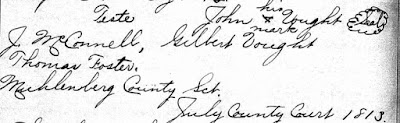 his
Teste John x Vought Seal
mark
J. McConnell, Gilbert Vought
Thomas Foster.
Muhlenberg County Sct.
July County Court 1813.